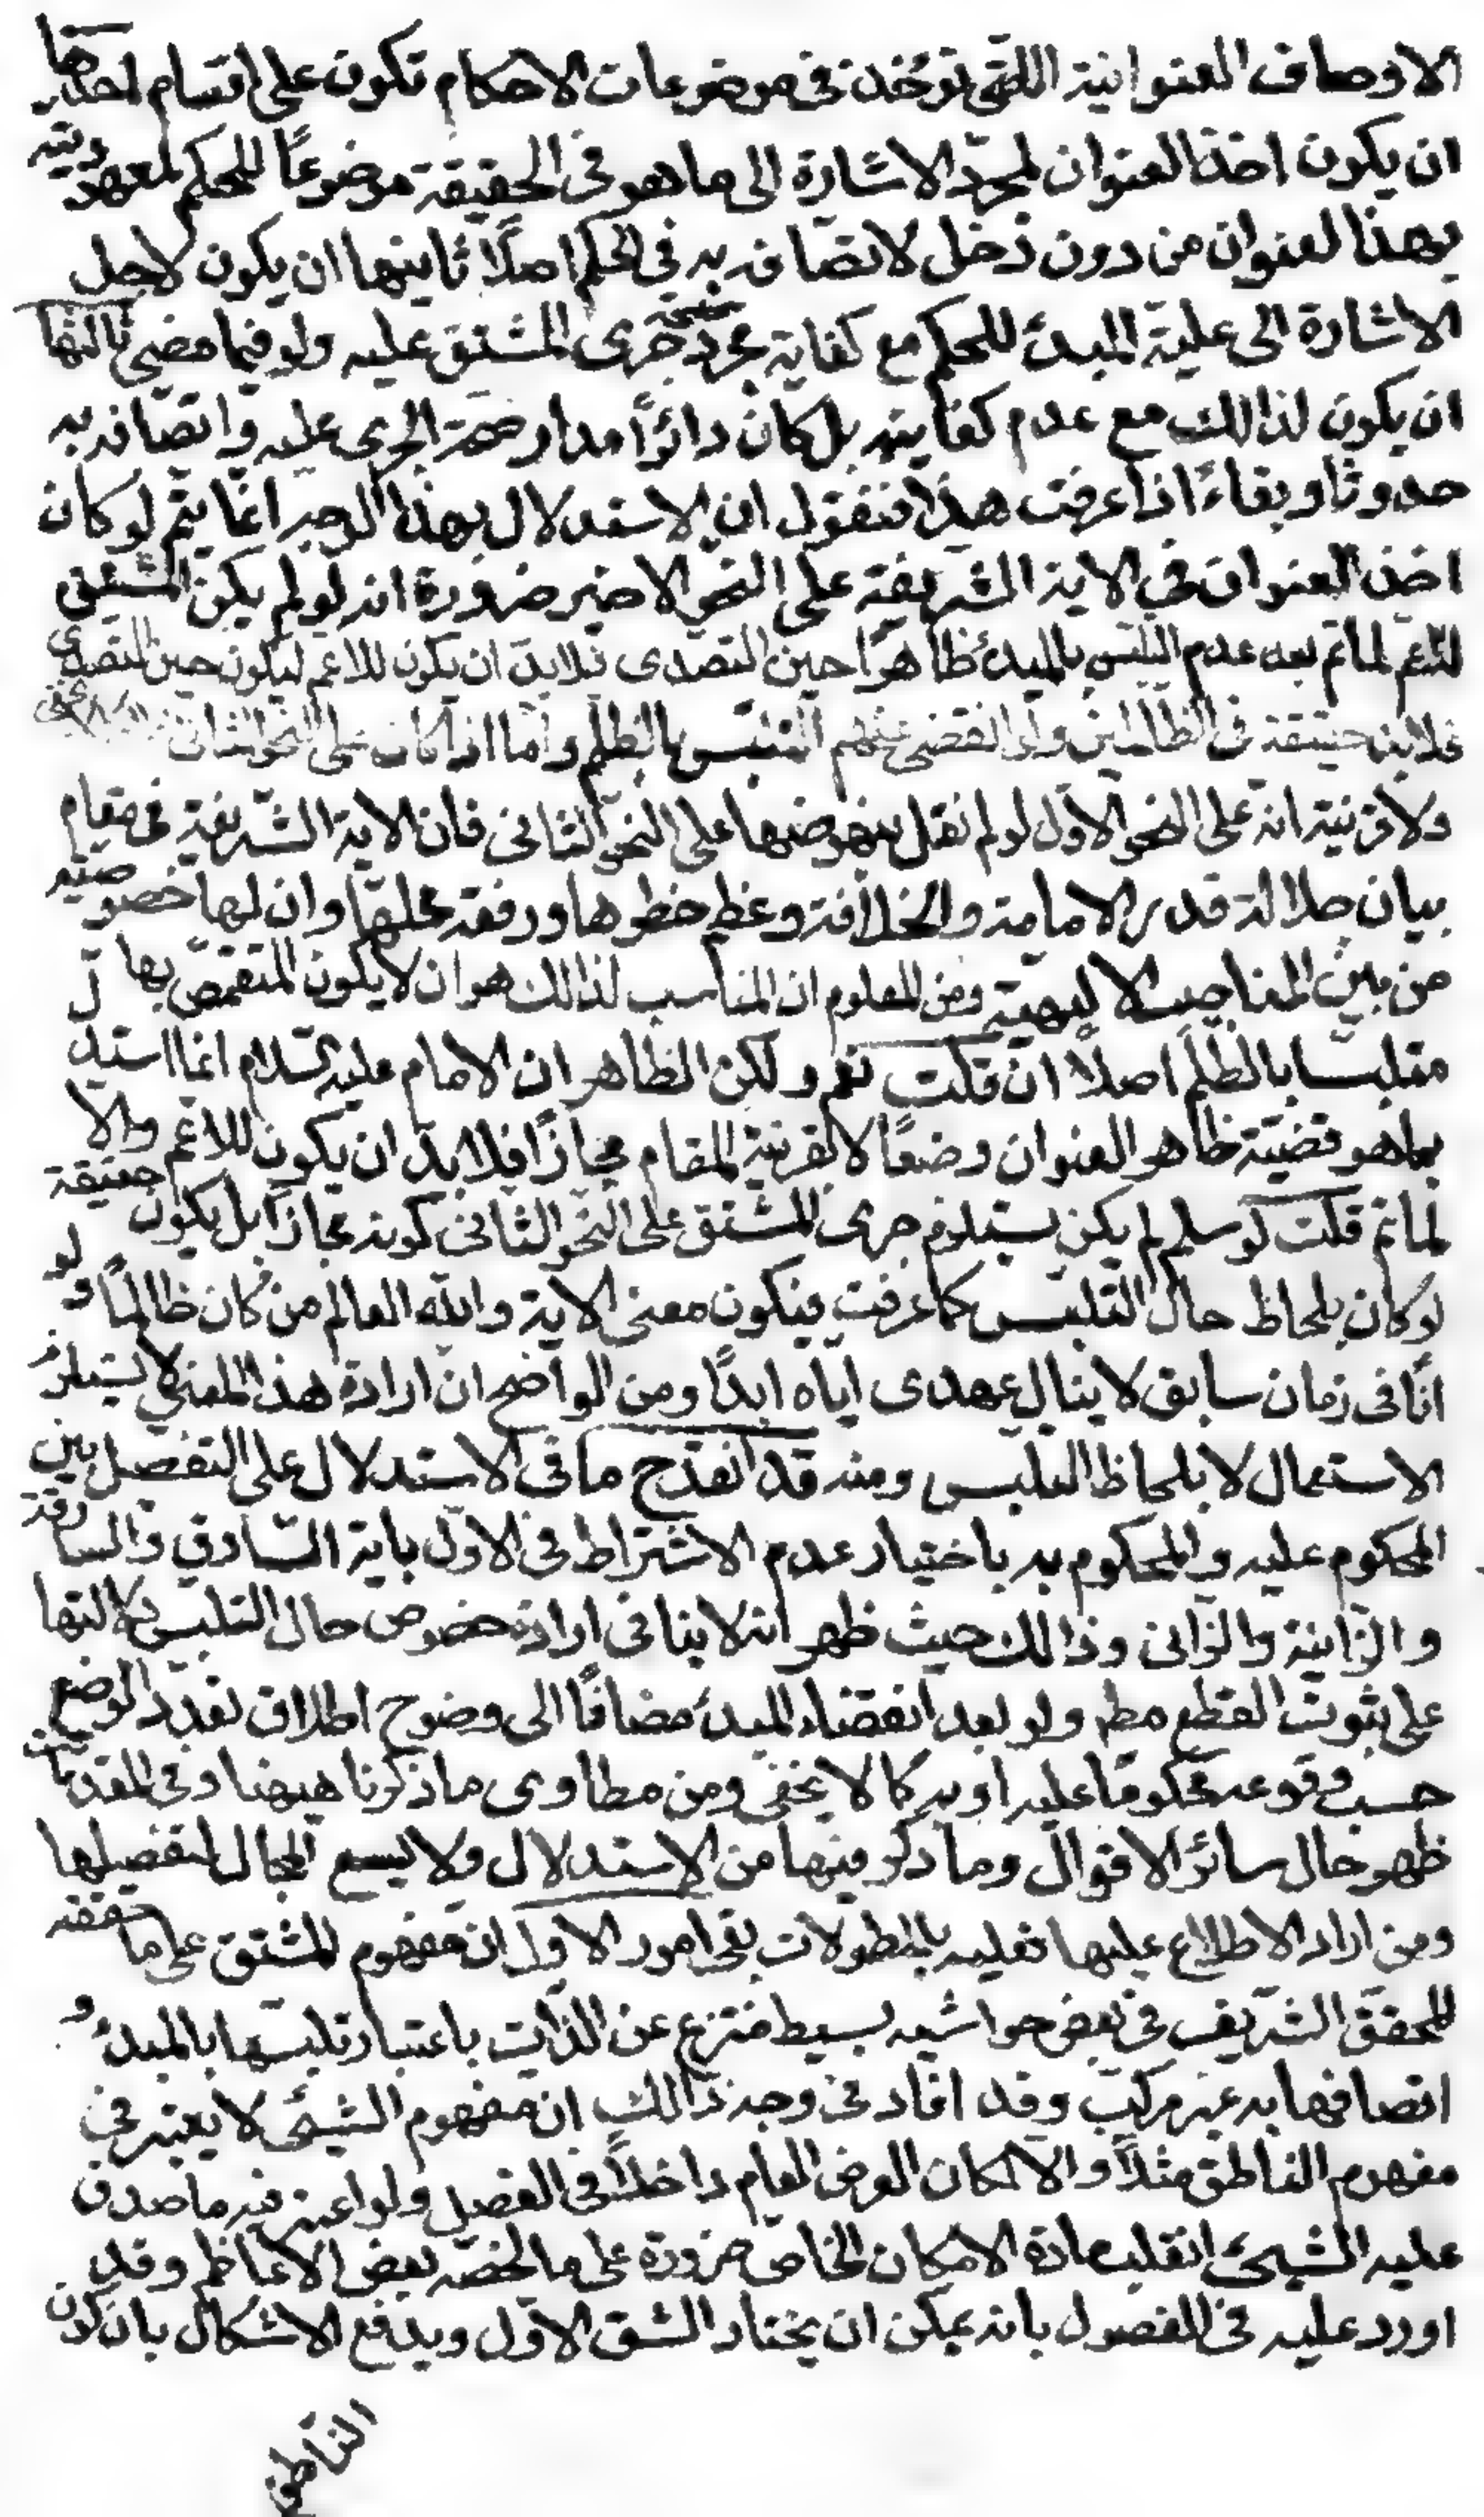 الاوصاف العنوانية اللتى توخذ فى موضوعات الاحكام تكون على اقسام احدها
ان يكون اخذ العنوان لمجرد الاشارة الى ما هو فى الحقيقة موضوعًا للحكم لمعهوديته
بهذا العنوان من دون دخل لاتصافه به فى الحكم اصلًا ثانيها ان يكون لاجل
الاشارة الى علية المبدء للحكم مع كفاية مجرد صحة جرى المشتق عليه ولو فيما مضى ثالثها
ان يكون لذالك مع عدم كفايته بل كان دائرًا مدار صحة الجرى عليه واتصافه به
حدوثًا وبقاءً اذا عرفت هذا فنقول ان الاستدلال بهذا الوجه انما يتم لو كان
اخذ العنوان فى الاية الشريفة على النحو الاخير ضرورة انه لو لم يكن المشتق
للاعم لما تم بعد عدم التلبس بالمبدء ظاهرًا حين التصدى فلابد ان يكون للاعم ليكون حين التصدى
حقيقة فى الظالمين ولو انقضى عنهم التلبس بالظلم واما اذا كان على النحو الثانى فلا
ولا قرينة انه على النحو الاول لو لم نقل بنهوضها على النحو الثانى فان الاية الشريفة فى مقام
بيان جلالة قدر الامامة والخلافة وعظم خطرها ورفعة محلها وان لها خصوصية
من بين المناصب الالهية ومن المعلوم ان المناسب لذالك هو ان لا يكون المتقمص بها
متلبسا بالظلم اصلًا ان قلت نعم ولكن الظاهر ان الامام عليه السلام انما استدل
بما هو قضية ظاهر العنوان وضعًا لا بقرينة المقام مجازًا فلابد ان يكون للاعم والا
لما تم قلت لو سلم لم يكن يستلزم جرى المشتق على النحو الثانى كونه مجازًا بل يكون حقيقة
لو كان بلحاظ حال التلبس كما عرفت فيكون معنى الاية والله العالم من كان ظالمًا ولو
انًا فى زمان سابق لا ينال عهدى اياه ابدًا ومن الواضح ان ارادة هذا المعنى لا يستلزم
الاستعمال لا بلحاظ التلبس ومنه قد انقدح ما فى الاستدلال على التفصيل بين
المحكوم عليه والمحكوم به باختيار عدم الاشتراط فى الاول باية السارق والسارقة
والزانية والزانى وذالك حيث ظهر انه لا ينافى ارادة خصوص حال التلبس دلالتها
على ثبوت القطع مطم ولو بعد انقضاء المبدء مضافًا الى وضوح اطلاق تعدد الوضع
حسب وقوعه محكومًا عليه او به كما لا يخفى ومن مطاوى ما ذكرنا هيهنا وفى المقدمات
ظهر حال سائر الاقوال وما ذكر فيها من الاستدلال ولا يسع المجال لتفصيلها
ومن اراد الاطلاع عليها فعليه بالمطولات بقى امور الاول ان مفهوم المشتق على ما حققه
المحقق الشريف فى بعض حواشيه بسيط منتزع عن الذات باعتبار تلبسها بالمبدء و
اتصافها به غير مركب وقد افاد فى وجه ذالك ان مفهوم الشيئ لا يعتبر فى
مفهوم الناطق مثلًا والا لكان العرض العام داخلًا فى الفصل ولو اعتبر فيه ما صدق
عليه الشيئ انقلب مادة الامكان الخاص ضرورة على ما لخصه بعض الاعاظم وقد
اورد عليه فى الفصول بانه يمكن ان يختار الشق الاول ويدفع الاشكال بان كون
الناطق